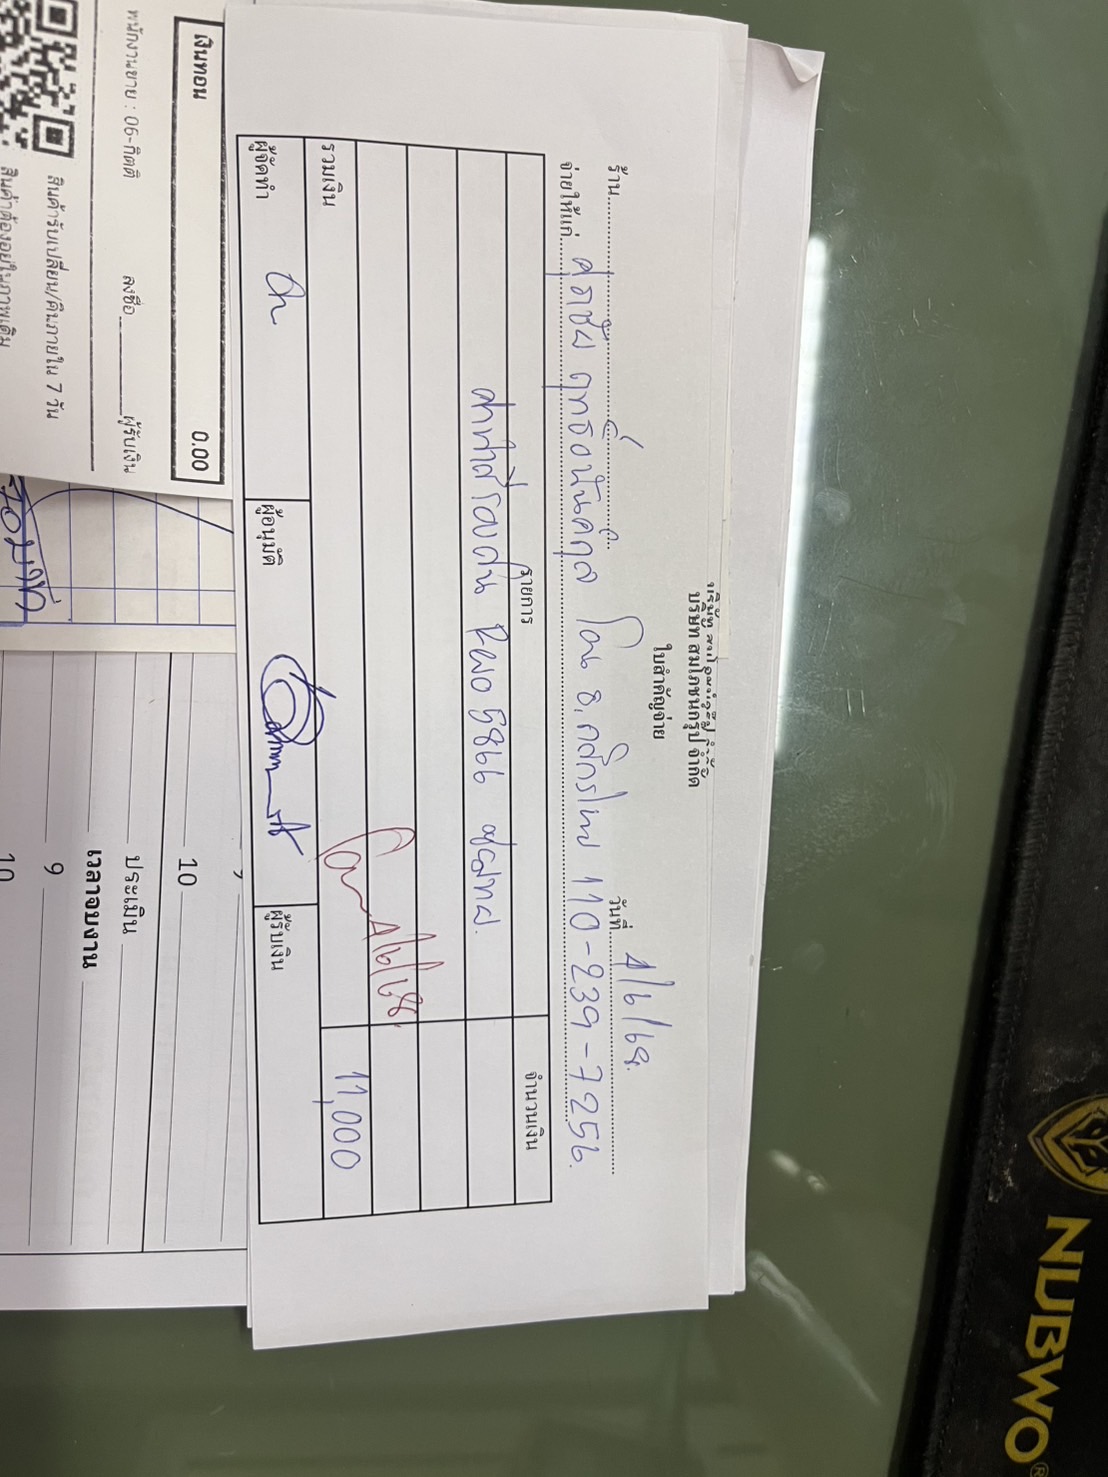 บริษัท สมโภชนกรุป จำกัด
ใบสำคัญจ่าย
ร้าน
วันที่ 4/6/68
จ่ายให้แก่ ศุภชัย ฤทธิอนันต์กุล โอน ธ.กสิกรไทย 110-239-7256.
รายการ
จำนวนเงิน
5866
รวมเงิน
11,000
โอน 4/6/68
ผู้จัดทำ
ผู้อนุมัติ
ผู้รับเงิน
เงินทอน
0.00
พนักงานขาย : 06-กิตติ
ลงชื่อ ผู้รับเงิน
สินค้ารับเปลี่ยน/คืนภายใน 7 วัน
สินค้าต้องอยู่ในภาพเดิม
10
ประเมิน
เวลาจบงาน
9
10
NUBWO